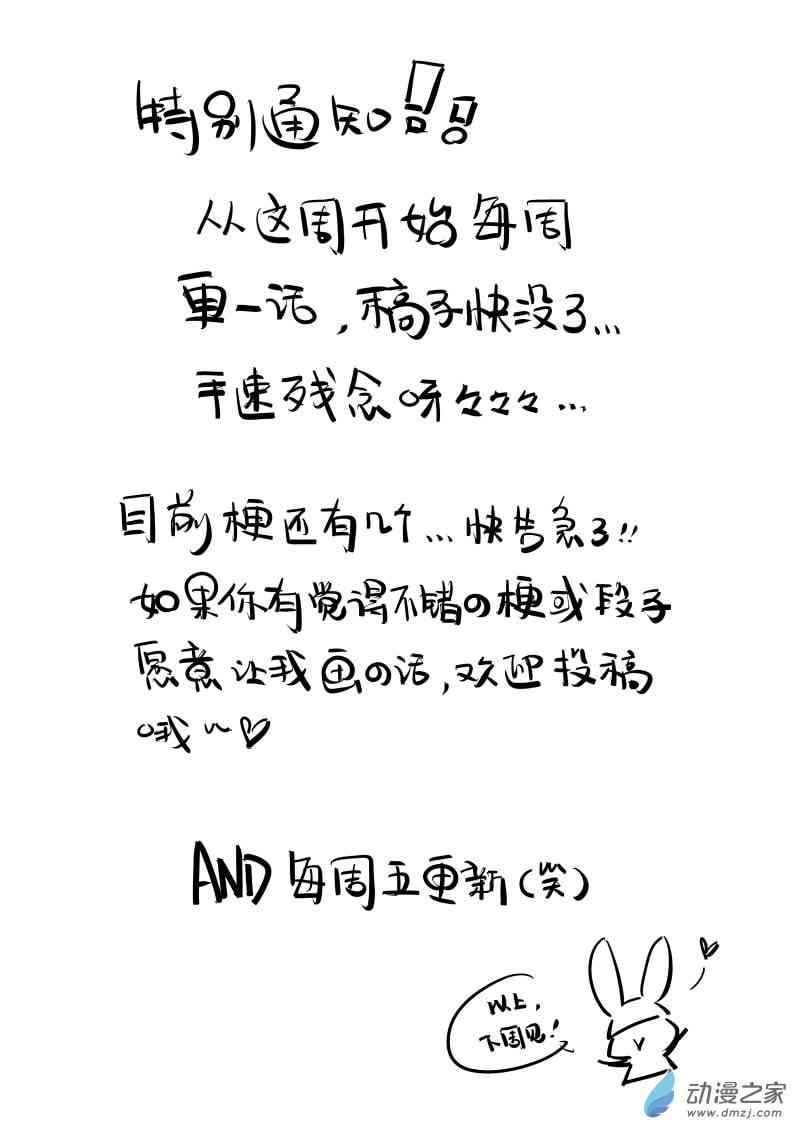 特别通知!!!
从这周开始每周
更一话,稿子快没了...
手速残念呀々々々...
目前梗还有几个...快告急了!!
如果你有觉得不错の梗或段子
愿意让我画の话,欢迎投稿
哦~♡
AND每周五更新(笑)
以上,
下周见!
动漫之家
www.dmzj.com